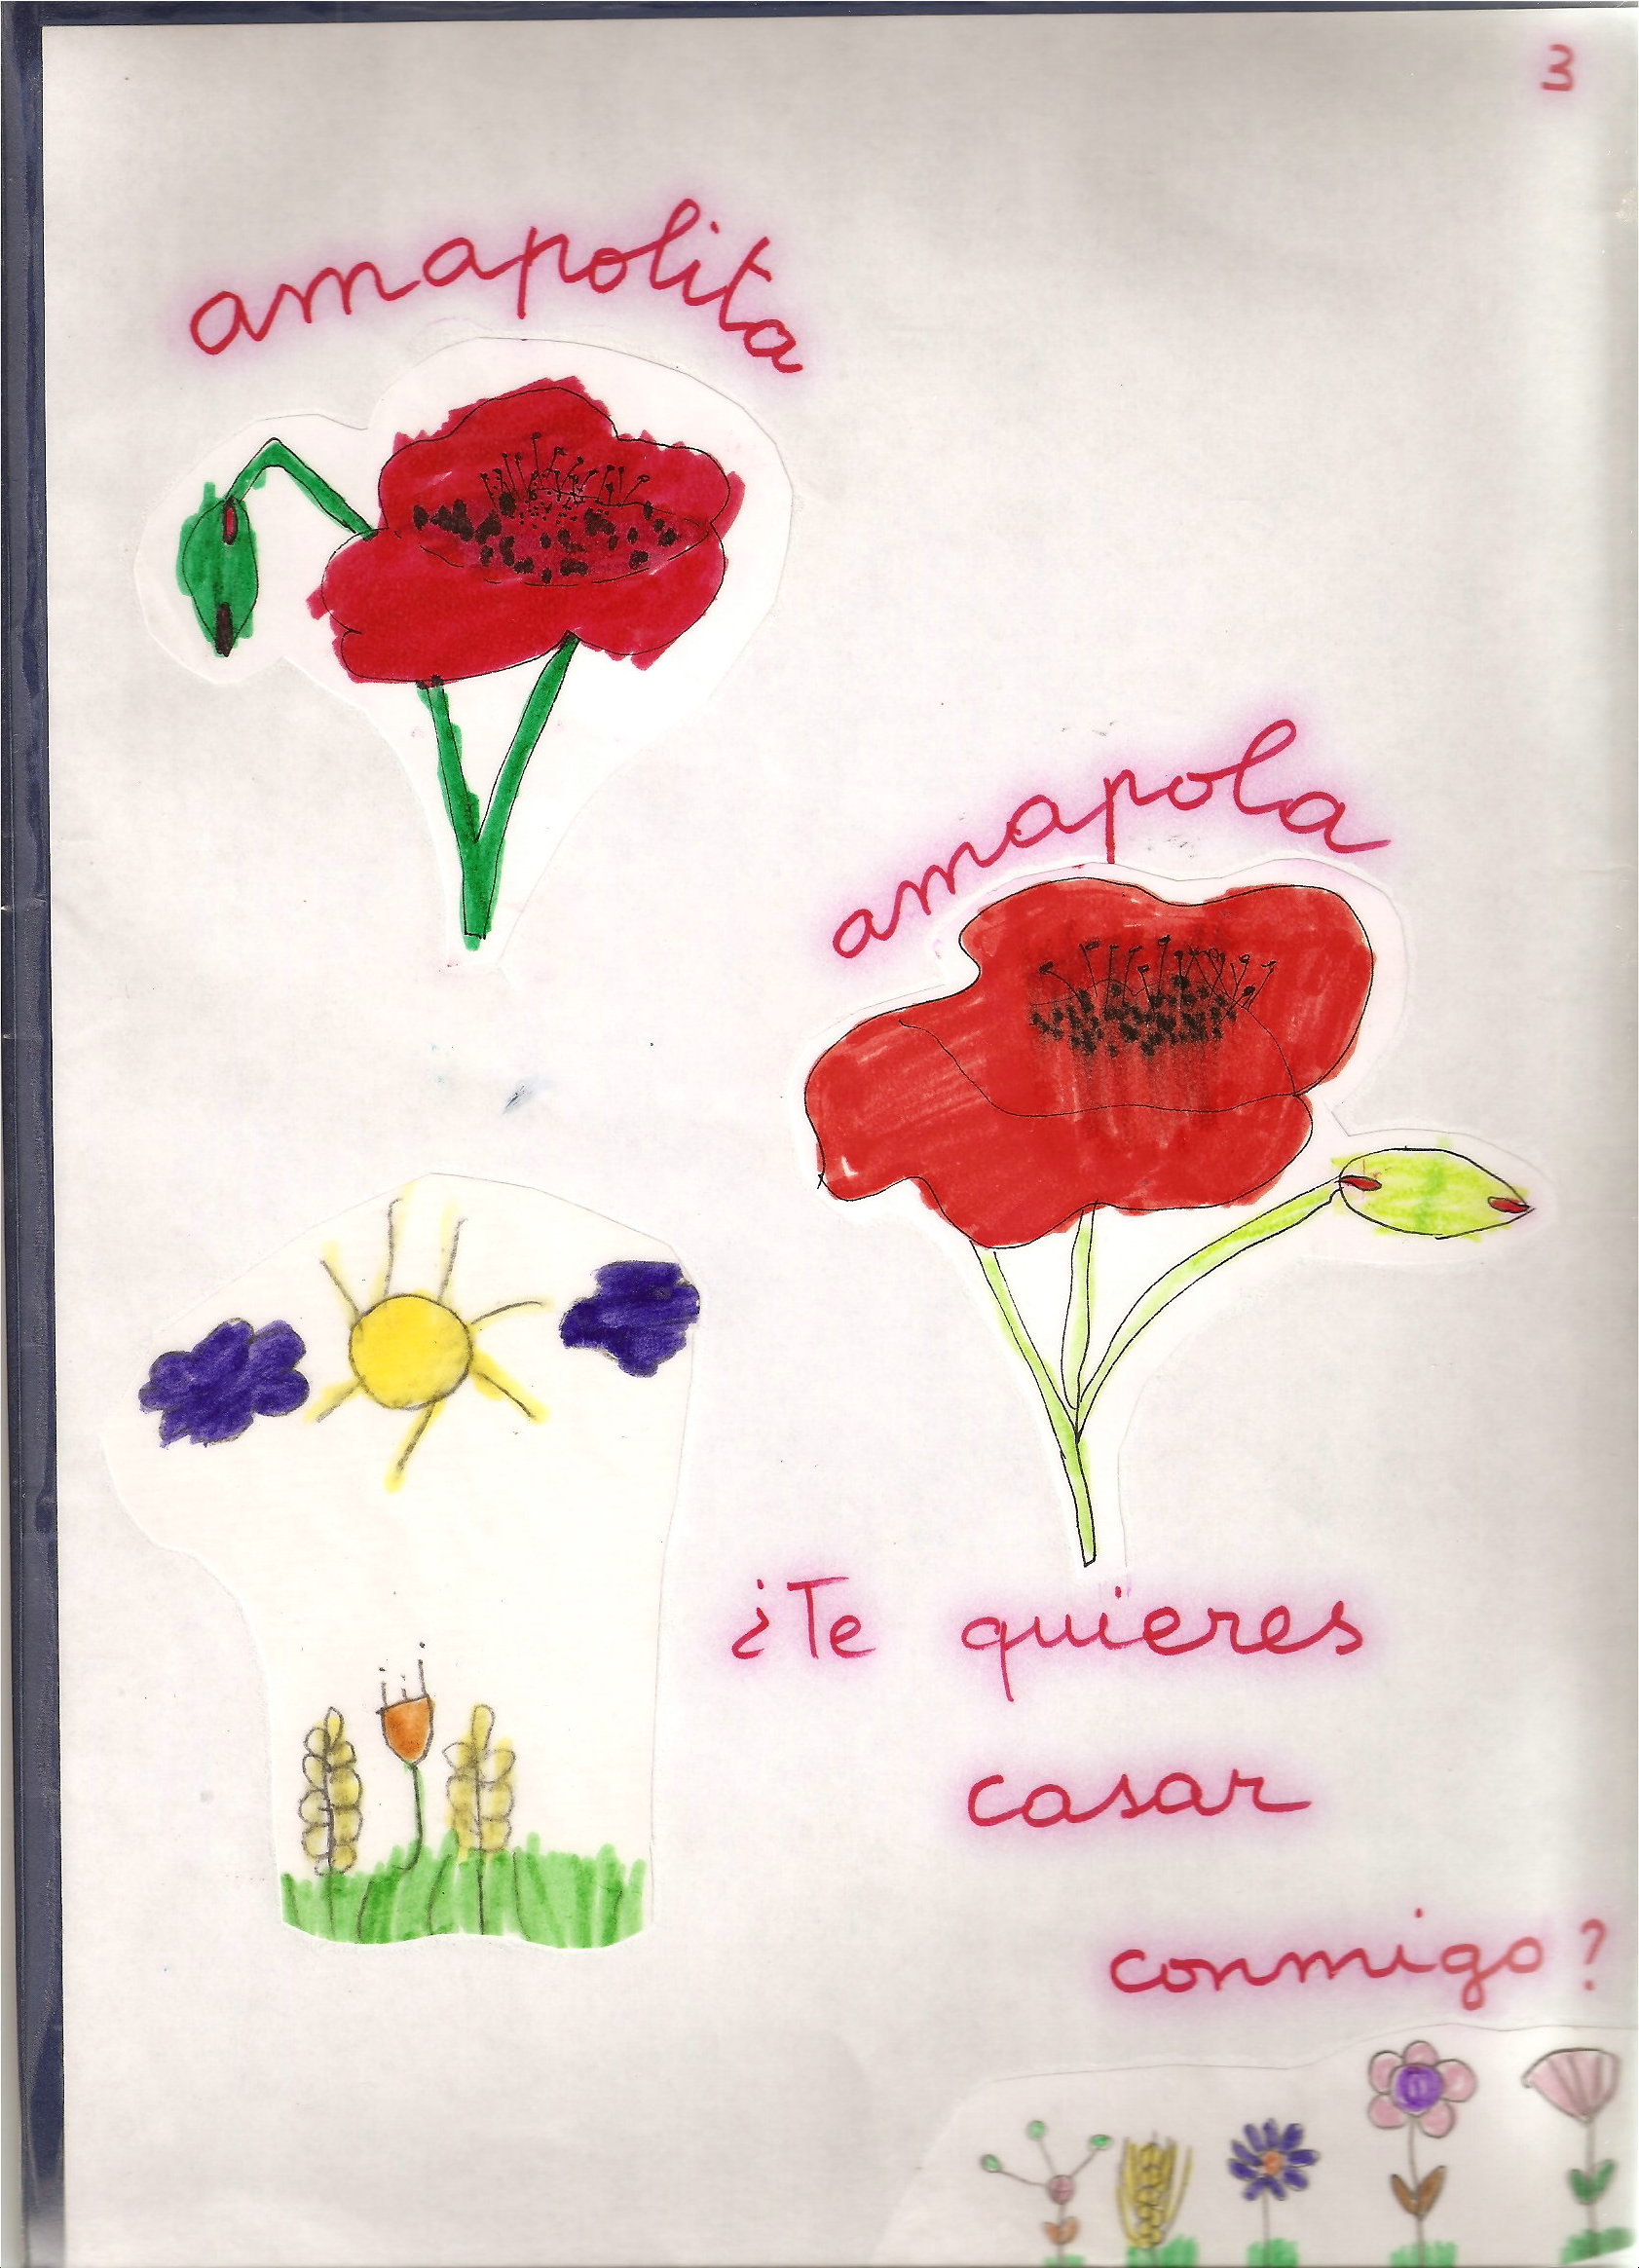 3
amapolita
amapola
¿Te quieres
casar
conmigo?